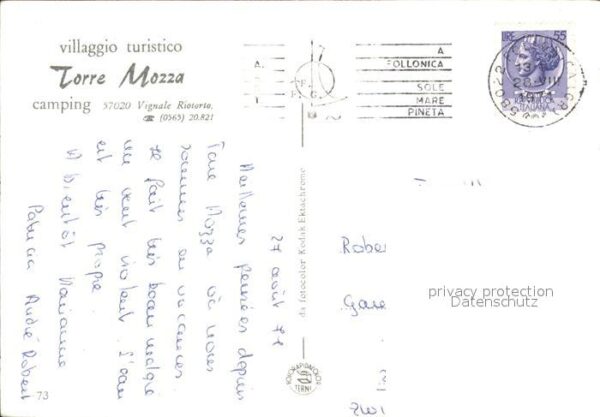 villaggio turistico
Torre Mozza
camping 57020 Vignale Riotorto
☎ (0565) 20.821
A
FOLLONICA
SOLE
MARE
PINETA
LIRE 55
ITALIANA
58022
27 août 74
Meilleures pensées depuis
Torre Mozza où nous
sommes en vacances.
Il fait très beau malgré
un vent violent. L'eau
est très propre.
A bientôt Marianne
Patricia André Robert
73
da fotocolor Kodak Ektachrome
ROTOALFOCOLOR
TERNI
Rober
Gare
privacy protection
Datenschutz